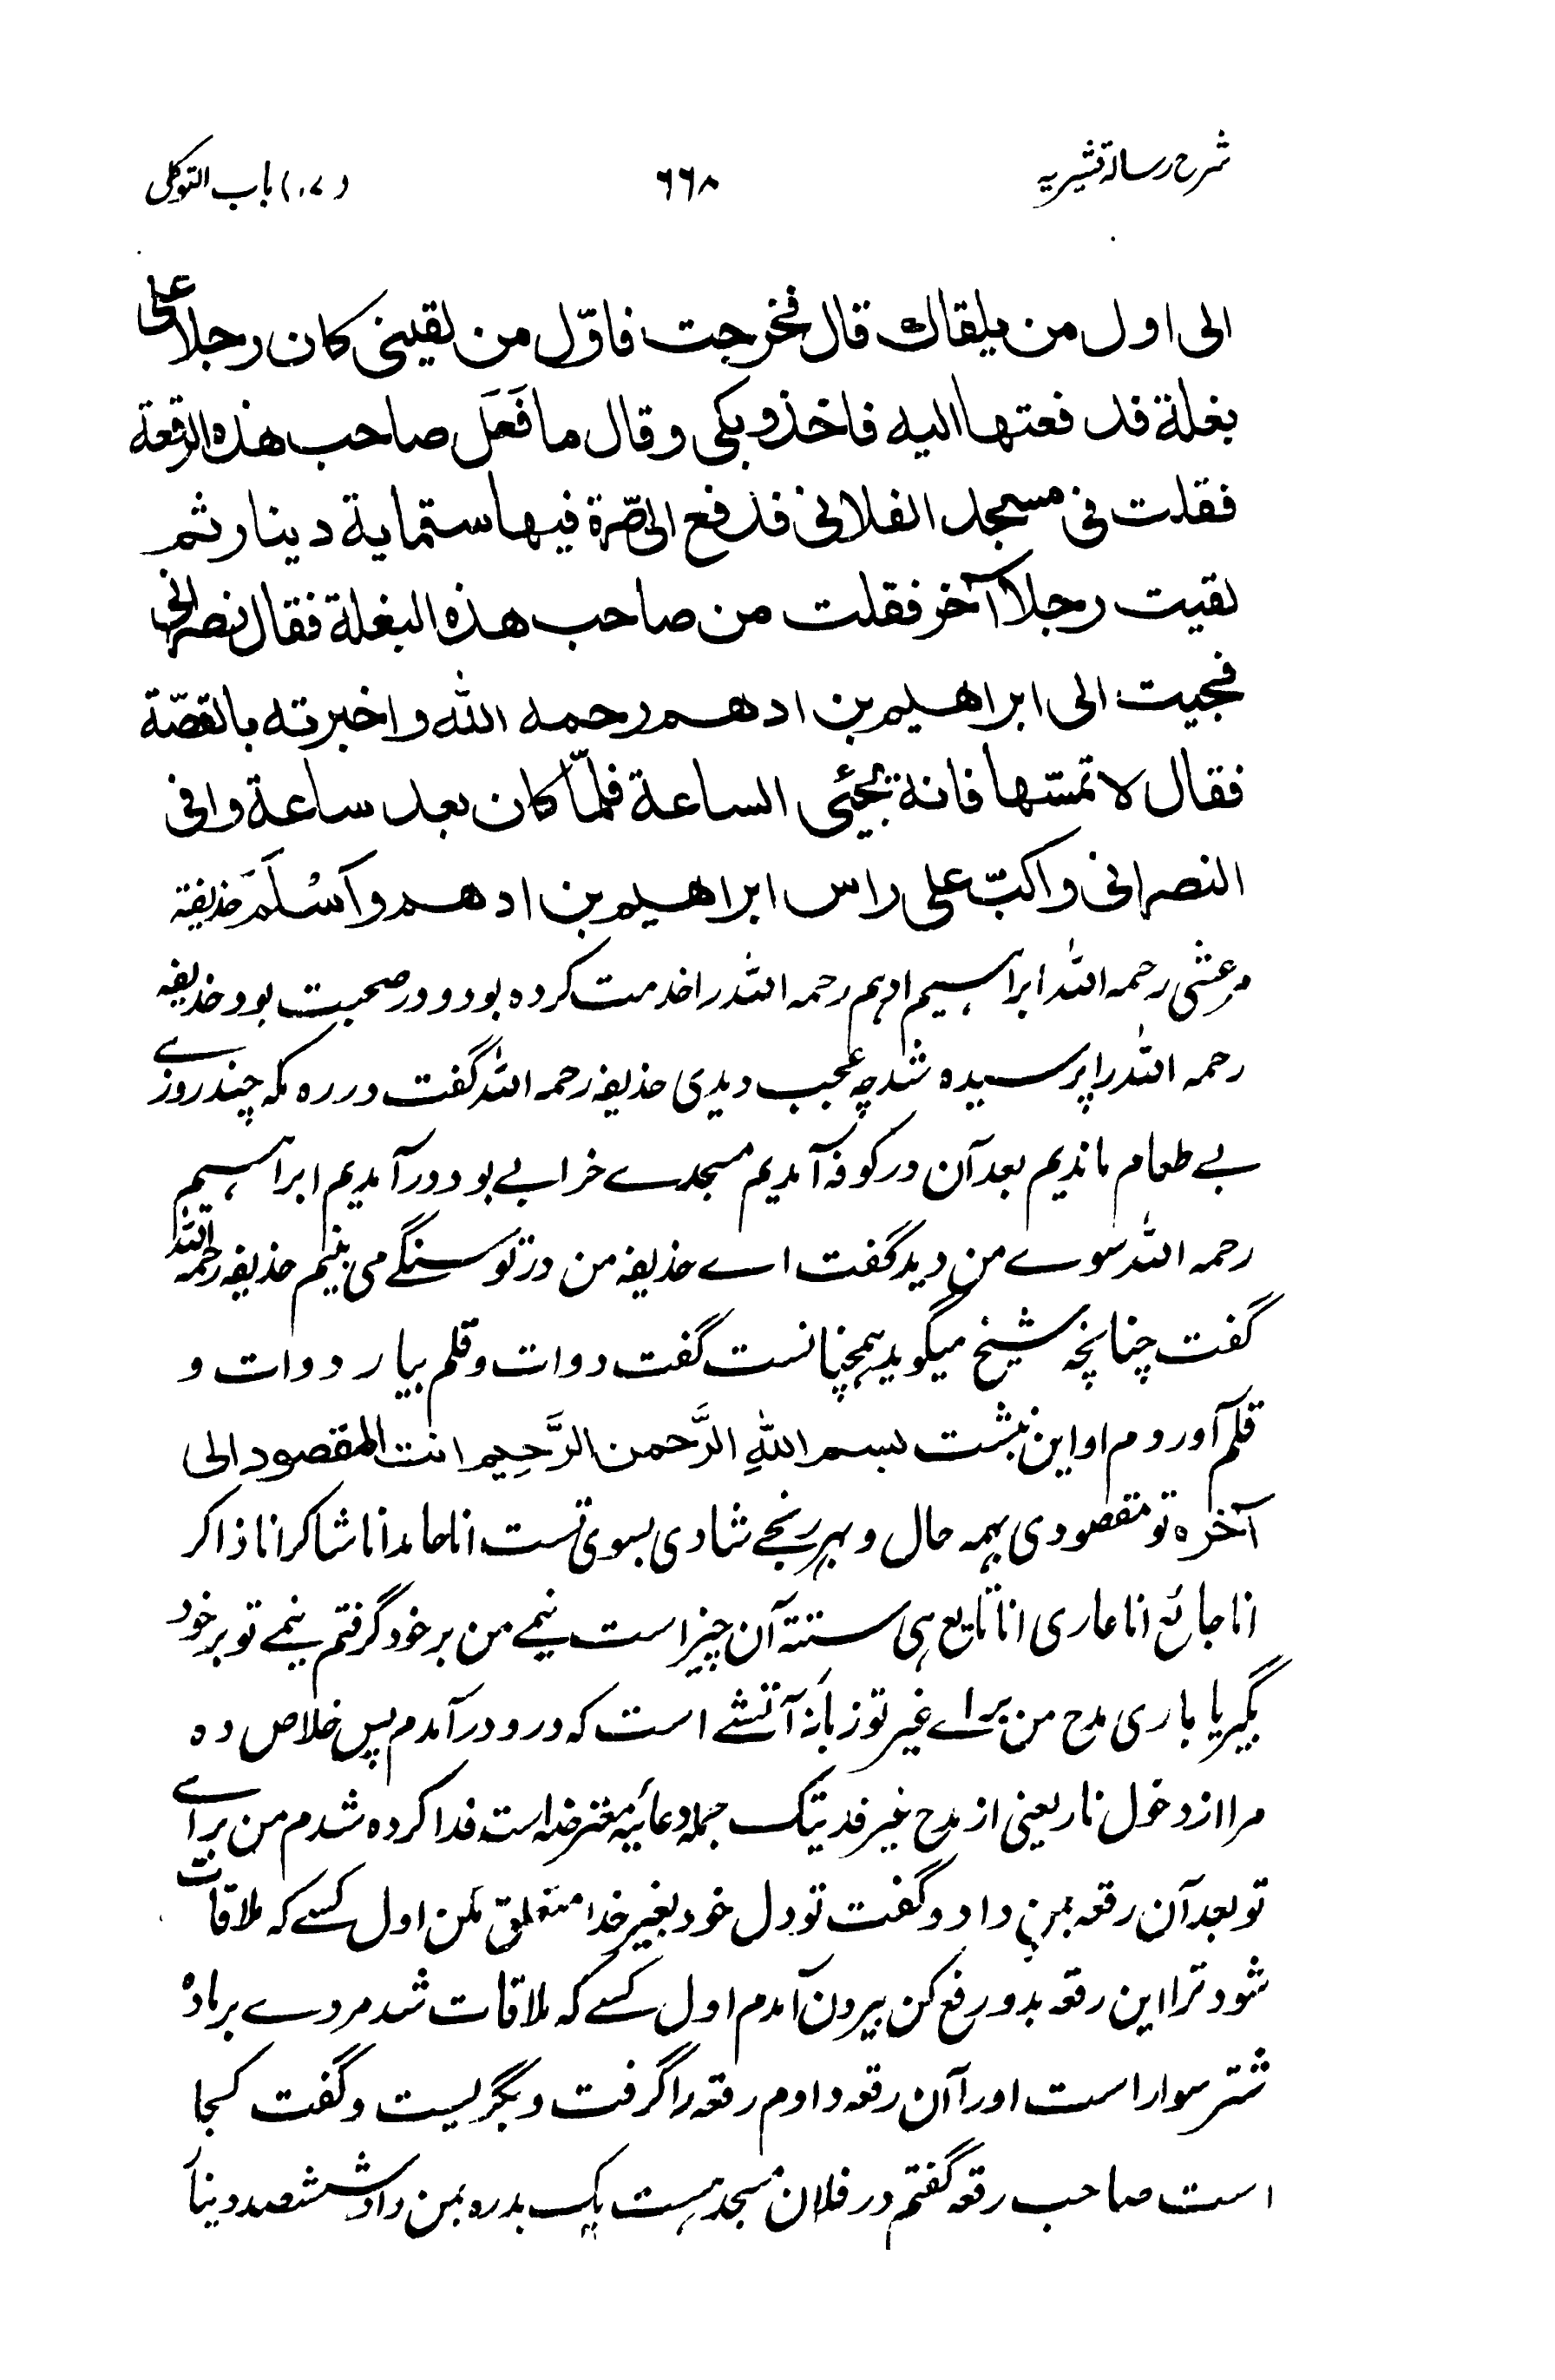 شرح رسالۀ قشیریه ٦٦٨ (١٧) باب التوکل
الی اول من یلقاك قال فخرجت فاوّل من لقینی کان رجلا علی
بغلة فدفعتها الیه فاخذ وبکی وقال ما فَعَلَ صاحب هذه الرقعة
فقلت فی مسجد الفلانی فدفع الیّ صّرة فیها ستمایة دینار ثم
لقیت رجلا آخر فقلت من صاحب هذه البغلة فقال نصرانی
فجیت الی ابراهیم بن ادهم رحمه الله واخبرته بالقصّة
فقال لا تمسّها فانه یجیٔی الساعة فلمّا کان بعد ساعة وافی
النصرانی واکبّ علی راس ابراهیم بن ادهم وَاَسْلَمَ حذیفه
مرعشی رحمه الله ابراهیم ادهم رحمه الله را خدمت کرده بود و در صحبت بود حذیفه
رحمه الله را پرسیده شد چه عجب دیدی حذیفه رحمه الله گفت در ره مکه چند روزے
بے طعام ماندیم بعد آن در کوفه آمدیم مسجدے خرابے بود در آمدیم ابراهیم
رحمه الله سوے من دید گفت اے حذیفه من در تو سنگے می بینم حذیفه رحمه الله
گفت چنانچه شیخ میگوید همچنانست گفت دوات و قلم بیار دوات و
قلم آوردم او این نبشت بسم اللهِ الرَّحمن الرَّحِیم انت المقصود الی
آخره تو مقصودی بهمه حال و بهر رنجے شادی بسوی تست انا حامد انا شاکر انا ذاکر
انا جائع انا عاری انا نایع هی ستة آن چیز است نیمے من بر خود گرفتم نیمے تو بر خود
بگیر یا باری مدح من براے غیر تو زبانۀ آتشے است که درو در آمدم پس خلاص ده
مرا از دخول نار یعنی از مدح غیر فدیتک جمله دعائیه معترضه است فدا کرده شدم من براے
تو بعد آن رقعه بمن داد و گفت تو دل خود بغیر خدا متعلق مکن اول کسے که ملاقات
شود ترا این رقعه بدو رفع کن بیرون آمدم اول کسے که ملاقات شد مردے بر مادۀ
شتر سوار است او را آن رقعه دادم رقعه را گرفت و بگریست و گفت کجا
است صاحب رقعه گفتم در فلان مسجد هست یک بدره بمن داد ششصد دینار